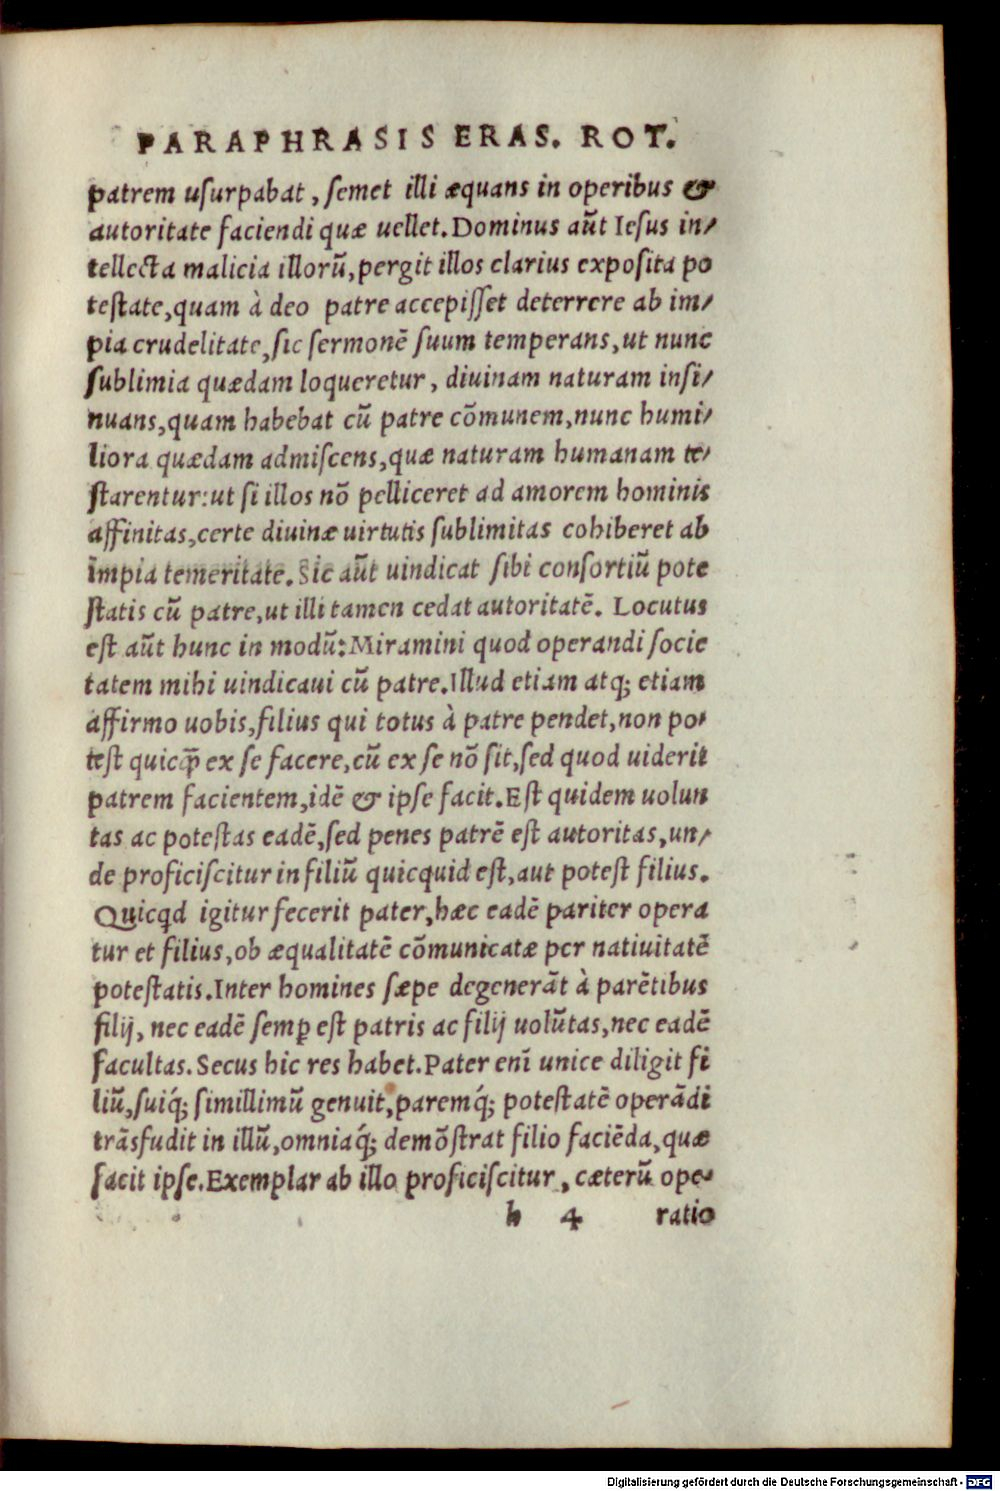 PARAPHRASIS ERAS. ROT.
patrem uſurpabat, ſemet illi æquans in operibus &
autoritate faciendi quæ uellet. Dominus aũt Ieſus in/
tellecta malicia illorũ, pergit illos clarius expoſita po
teſtate, quam à deo patre accepiſſet deterrere ab im/
pia crudelitate, ſic ſermonẽ ſuum temperans, ut nunc
ſublimia quædam loqueretur, diuinam naturam inſi/
nuans, quam habebat cũ patre cõmunem, nunc humi/
liora quædam admiſcens, quæ naturam humanam te/
ſtarentur: ut ſi illos nõ pelliceret ad amorem hominis
affinitas, certe diuinæ uirtutis ſublimitas cohiberet ab
ĩmpia temeritate. Sic aũt uindicat ſibi conſortiũ pote
ſtatis cũ patre, ut illi tamen cedat autoritatẽ. Locutus
eſt aũt hunc in modũ: Miramini quod operandi ſocie
tatem mihi uindicaui cũ patre. Illud etiam atq; etiam
affirmo uobis, filius qui totus à patre pendet, non po/
teſt quicq̃ ex ſe facere, cũ ex ſe nõ ſit, ſed quod uiderit
patrem facientem, idẽ & ipſe facit. Eſt quidem uolun
tas ac poteſtas eadẽ, ſed penes patrẽ eſt autoritas, un/
de proficiſcitur in filiũ quicquid eſt, aut poteſt filius.
Quicqd igitur fecerit pater, hæc eadẽ pariter opera
tur et filius, ob æqualitatẽ cõmunicatæ per natiuitatẽ
poteſtatis. Inter homines ſæpe degenerãt à parẽtibus
filij, nec eadẽ ſemꝑ eſt patris ac filij uolũtas, nec eadẽ
facultas. Secus hic res habet. Pater enĩ unice diligit fi
liũ, ſuiq́; ſimillimũ genuit, paremq́; poteſtatẽ operãdi
trãsfudit in illũ, omniaq́; demõſtrat filio faciẽda, quæ
facit ipſe. Exemplar ab illo proficiſcitur, cæterũ ope/
h 4 ratio
Digitalisierung gefördert durch die Deutsche Forschungsgemeinschaft - DFG